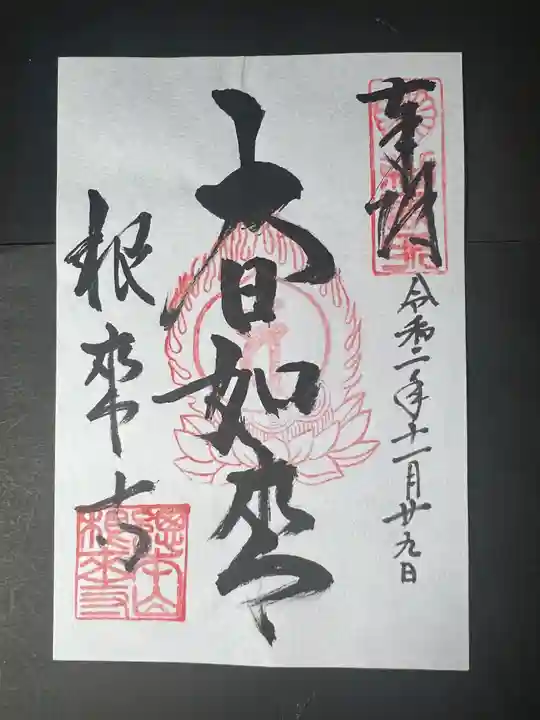 奉拝
令和二年十一月廿九日
大日如来
根来寺